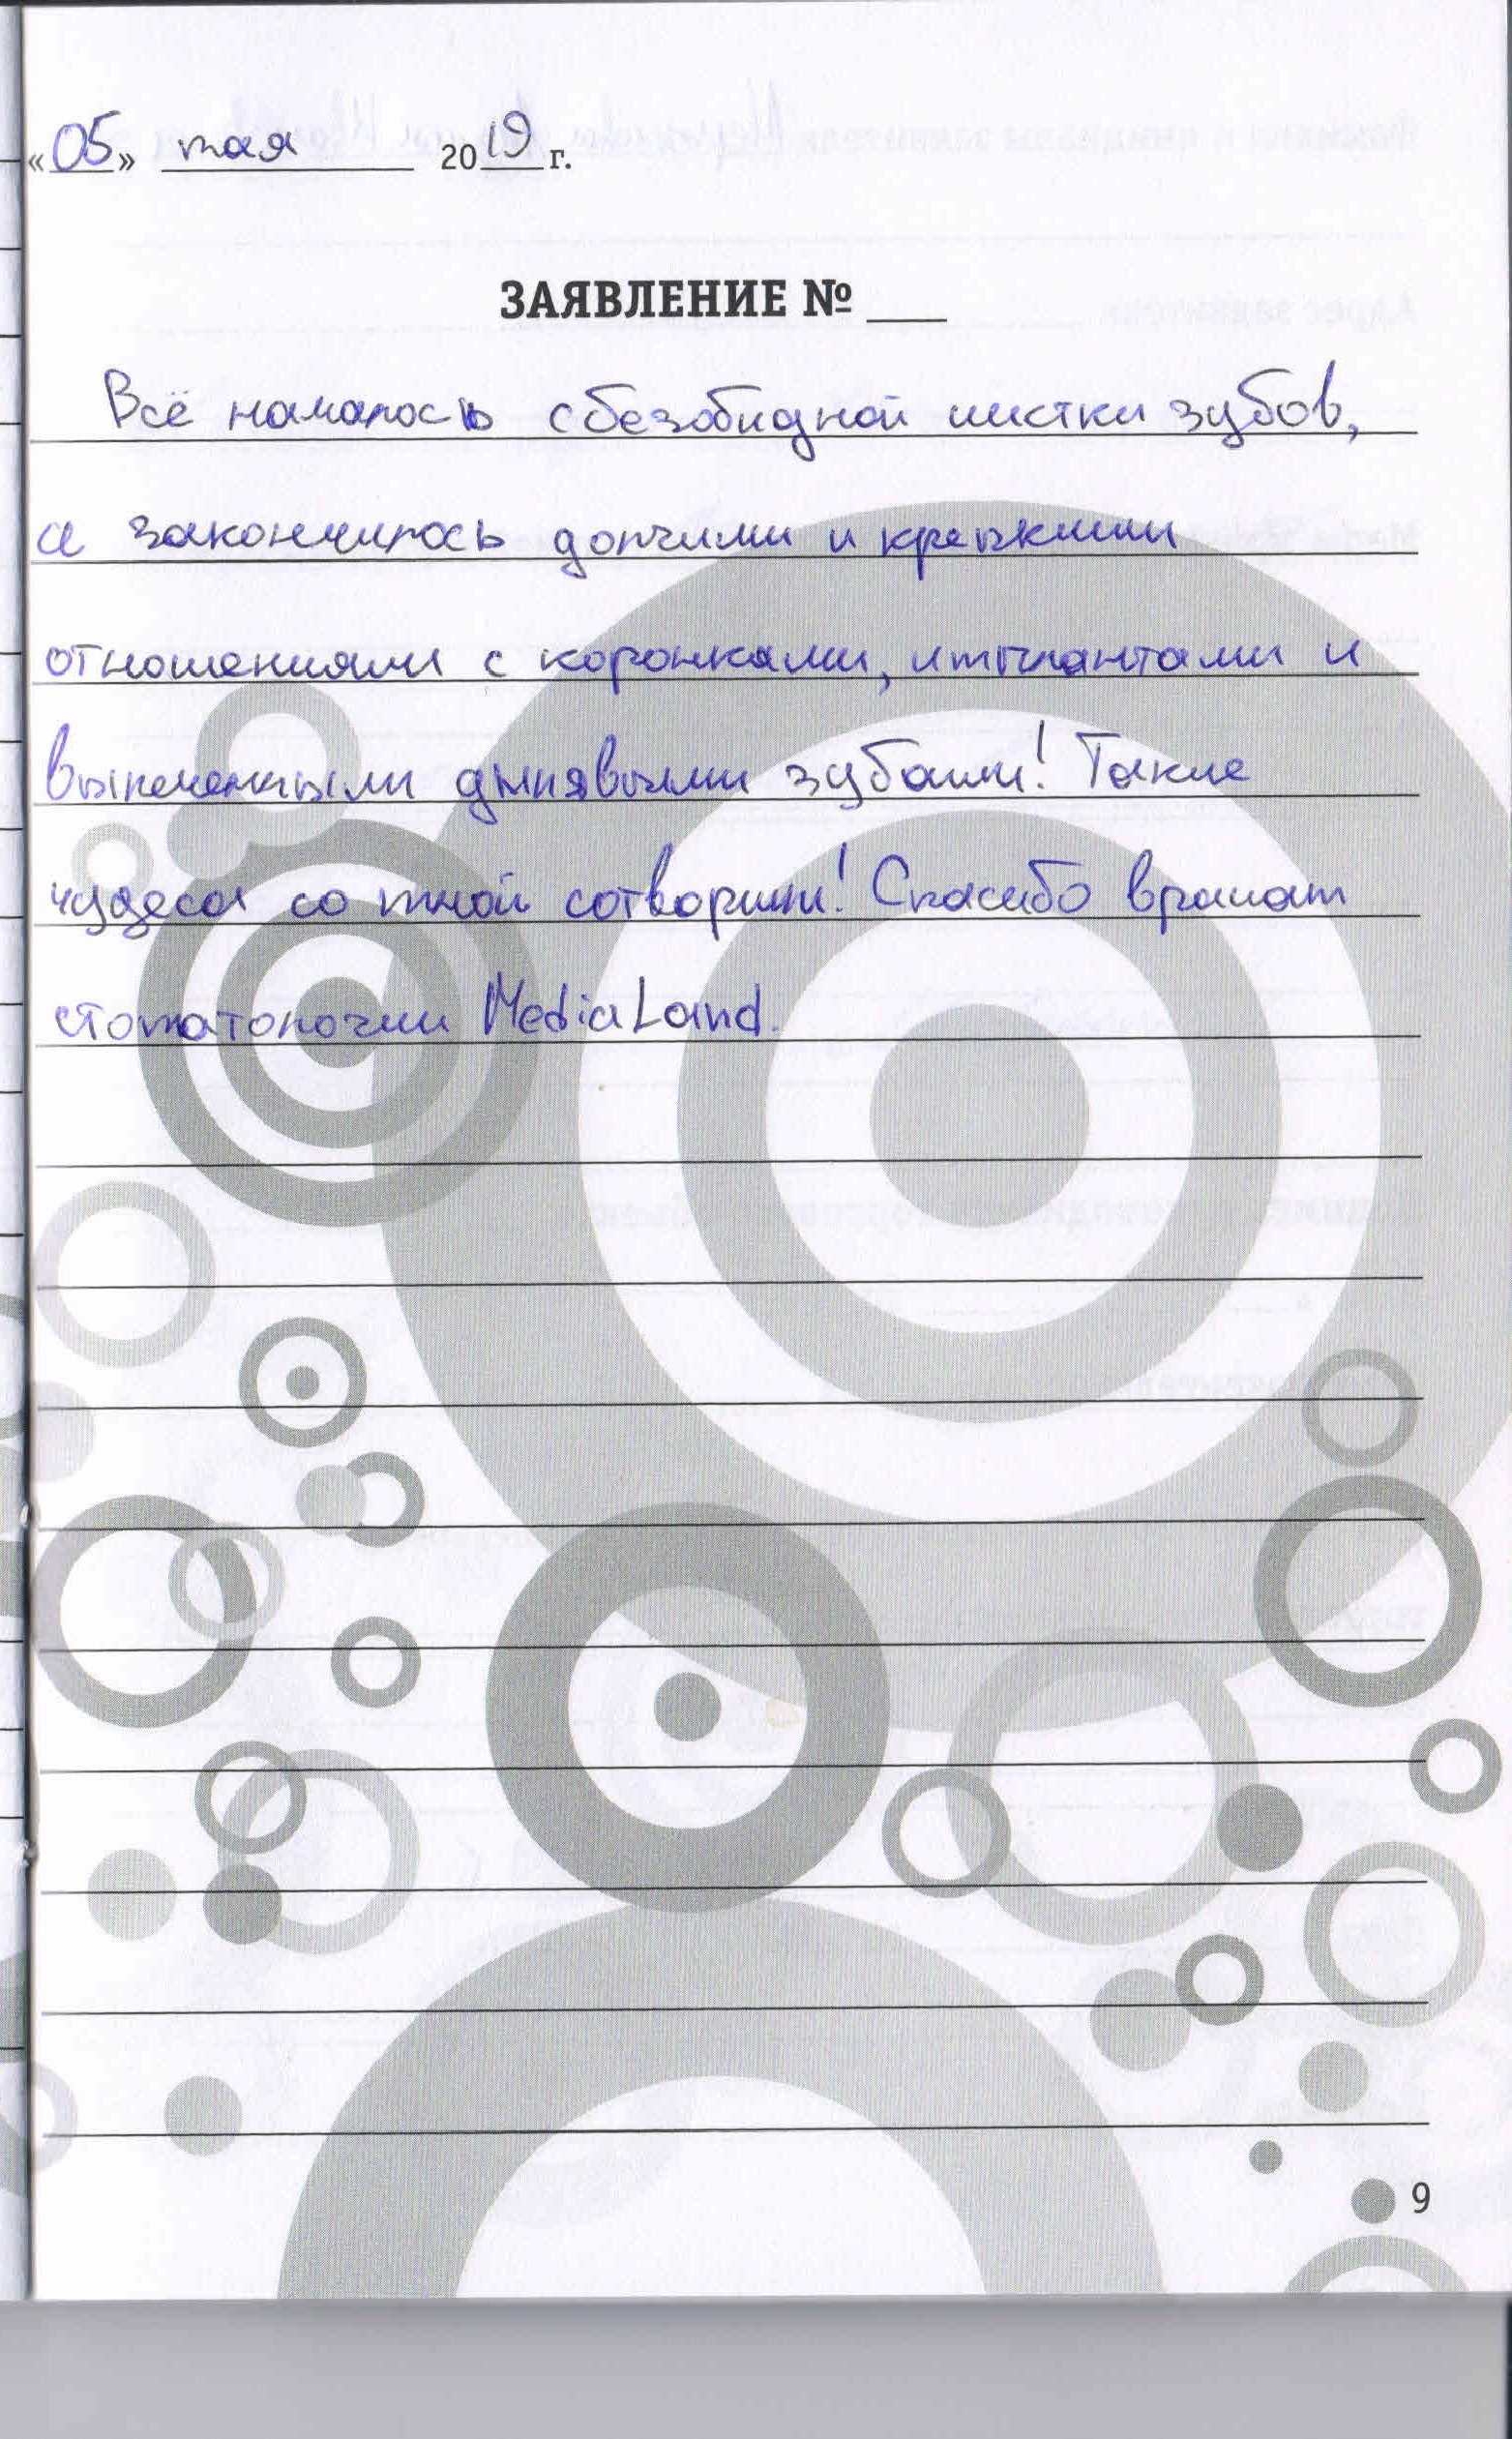 «05» мая 2019 г.
ЗАЯВЛЕНИЕ №
Всё началось с безобидной чистки зубов,
а закончилось долгими и крепкими
отношениями с коронками, имплантами и
вылеченными дырявыми зубами! Такие
чудеса со мной сотворили! Спасибо врачам
стоматологии MediaLand.
9